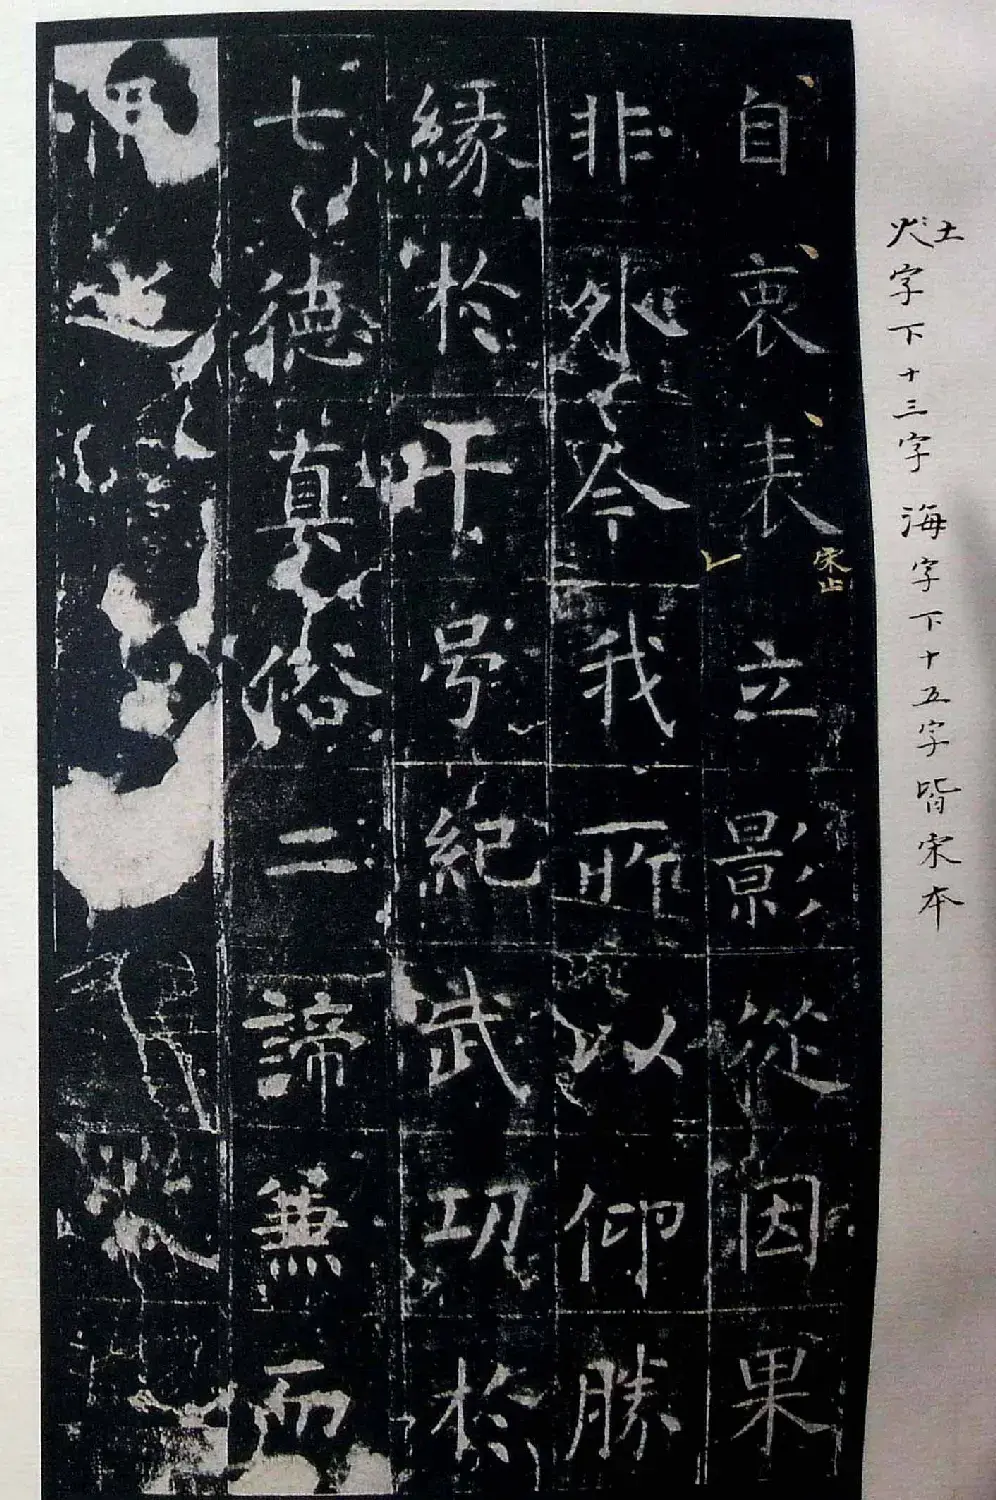 灶字下十三字海字下十五字皆宋本
自衷表立影從因果
宋止
非外今我所以仰勝
緣於紀武功於
七德真俗二諦兼而